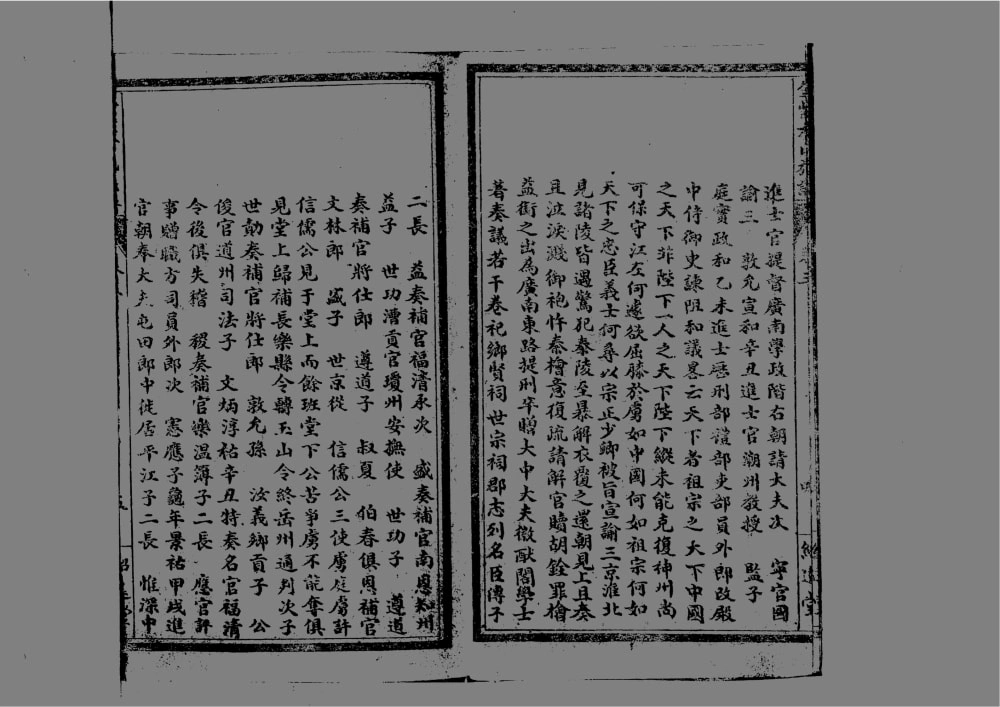 進士官提督廣南學政階右朝請大夫次 寧官國
諭三 敦允宣和辛丑進士官潮州教授 監子
庭實政和乙未進士歷刑部禮部吏部員外郎改殿
中侍御史諫阻和議畧云天下者祖宗之天下中國
之天下非陛下一人之天下陛下縱未能克復神州尚
可保守江左何遽欲屈膝於虜如中國何如祖宗何如
天下之忠臣義士何尋以宗正少卿被旨宣諭三京淮北
見諸陵皆遇驚犯泰陵至暴解衣覆之還朝見上且奏
且泣淚濺御袍忤秦檜意復疏請解官贖胡銓罪檜
益銜之出為廣南東路提刑卒贈大中大夫徽猷閣學士
著奏議若干卷祀鄉賢祠 世宗祠郡志列名臣傳子
二長 益奏補官福清承次 盛奏補官南恩知州
益子 世功漕貢官瓊州安撫使 世功子 遵道
奏補官將仕郎 遵道子 叔夏 伯春俱恩補官
文林郎 盛子 世京從 信儒公三使虜庭虜許
信儒公見于堂上而餘班堂下公苦爭虜不能奪俱
見堂上歸補長樂縣令轉玉山令終岳州通判次子
世勣奏補官將仕郎 敦允孫 汝義鄉貢子 公
俊官道州司法子 文炳淳祐辛丑特奏名官福清
令後俱失稽 稷奏補官樂溫簿子二長 應官評
事贈職方司員外郎次 憲應子龜年景祐甲戌進
官朝奉大夫屯田郎中徙居平江子二長 惟深中